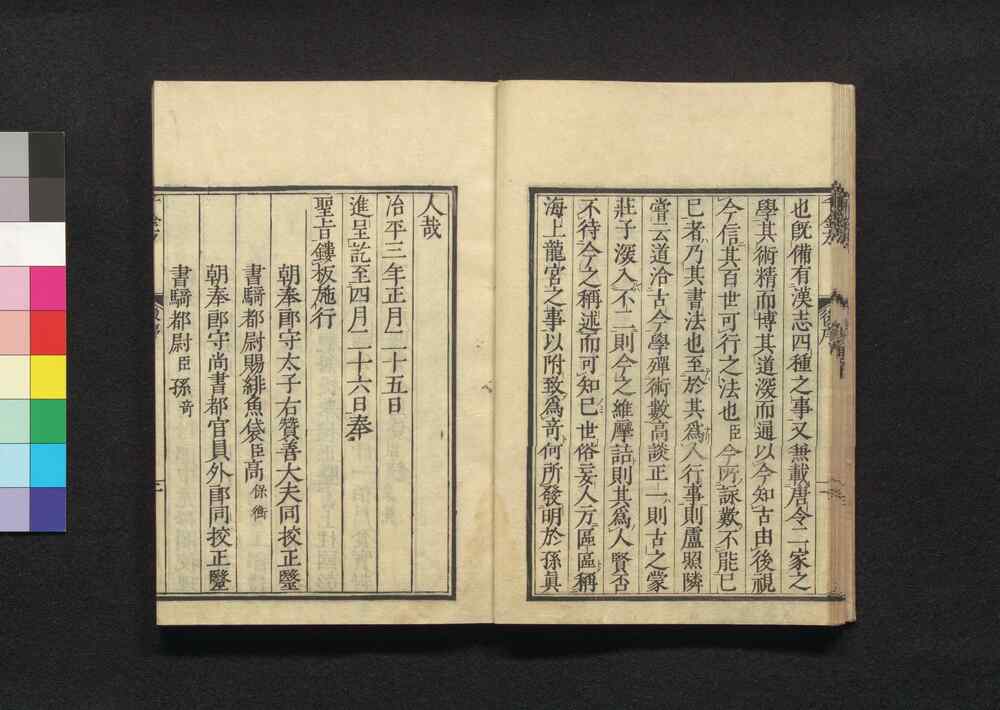 也旣備有漢志四種之事又無載唐令二家之
學其術精而博其道深而通以今知古由後視
今信其百世可行之法也臣今所詠歎不能已
已者乃其書法也至於其爲人行事則盧照隣
嘗云道洽古今學殫術數高談正一則古之蒙
莊子深入不二則今之維摩詰則其爲人賢否
不待今之稱述而可知已世俗妄人方區區稱
海上龍宮之事以附致爲奇何所發明於孫眞
人哉
治平三年正月二十五日
進呈訖至四月二十六日奉
聖旨鏤板施行
朝奉郎守太子右贊善大夫同挍正醫
書騎都尉賜緋魚袋臣高保衡
朝奉郎守尚書都官員外郎同挍正醫
書騎都尉臣孫奇
後序